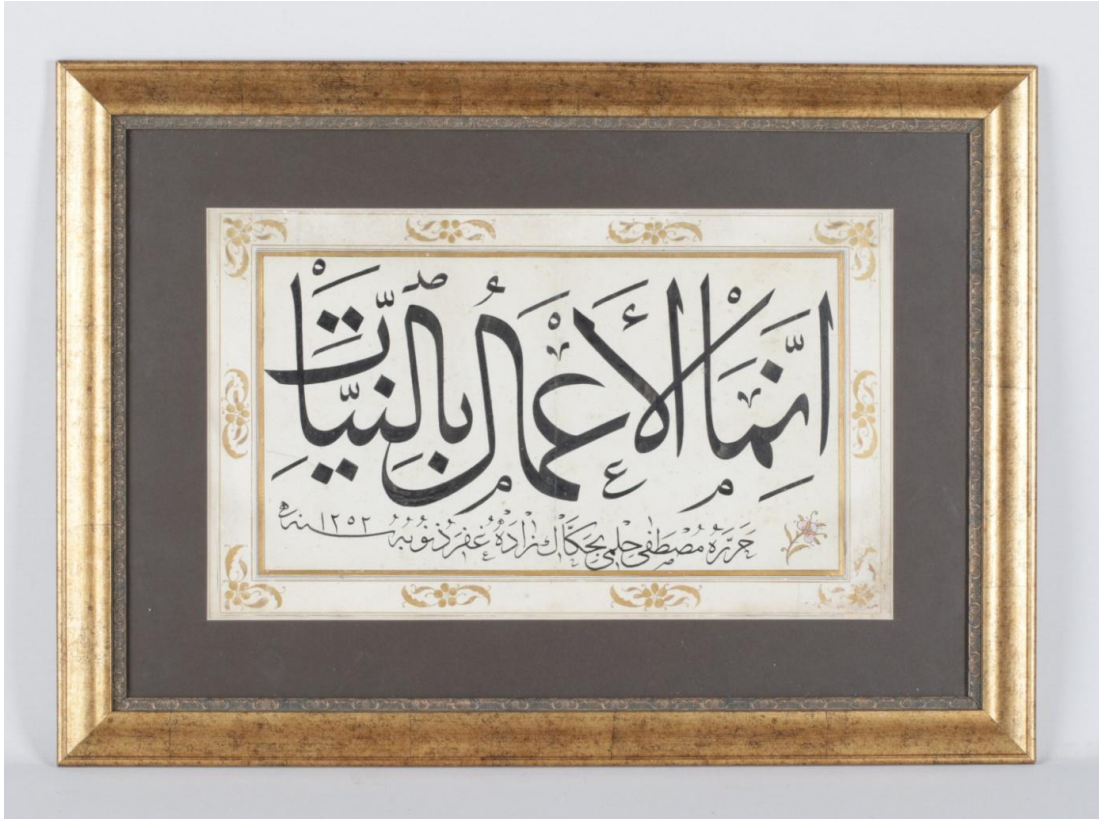 إِنَّمَا الْأَعْمَالُ بِالنِّيَّاتِ
حرره مصطفى حلمي بحكاك زاده غفر ذنوبه سنه ١٢٥٢